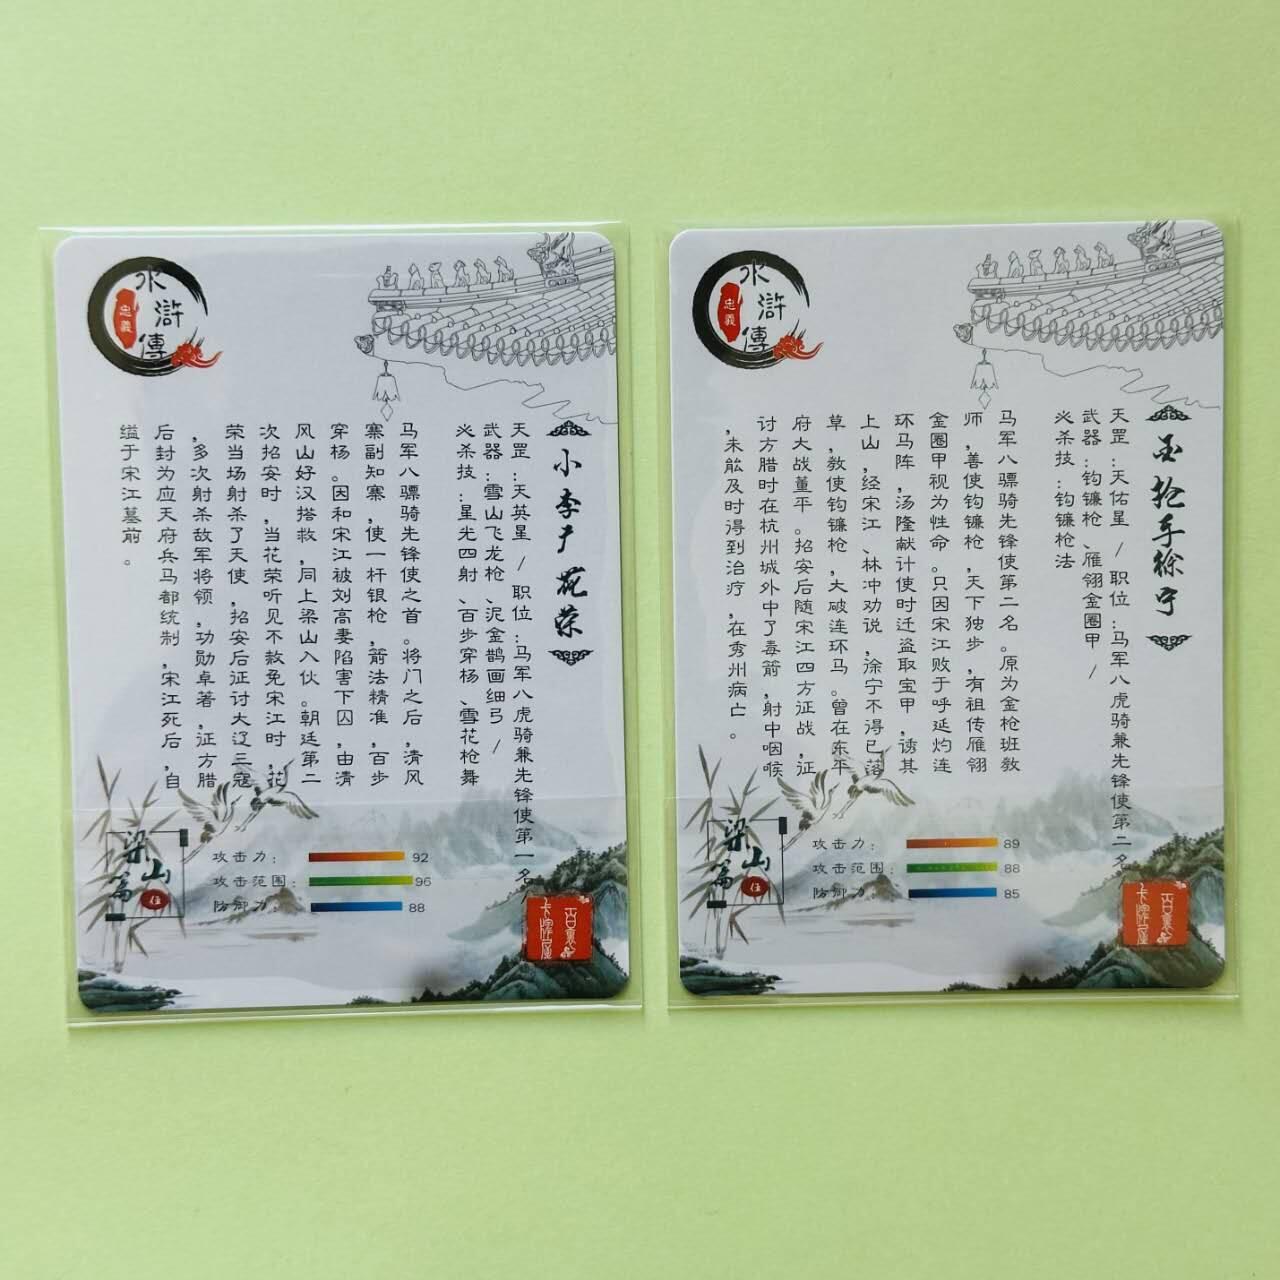 水
浒
傳
忠義
小李广 花荣
天罡:天英星 / 职位:马军八虎骑兼先锋使第一名
武器:雪山飞龙枪、泥金鹊画细弓 /
必杀技:星光四射、百步穿杨、雪花枪舞
马军八骠骑先锋使之首。将门之后,清风
寨副知寨,使一杆银枪,箭法精准,百步
穿杨。因和宋江被刘高妻陷害下囚,由清
风山好汉搭救,同上梁山入伙。朝廷第二
次招安时,当花荣听见不赦免宋江时,花
荣当场射杀了天使,招安后征讨大辽三寇
,多次射杀敌军将领,功勋卓著,征方腊
后封为应天府兵马都统制,宋江死后,自
缢于宋江墓前。
攻击力: 92
攻击范围: 96
防御力: 88
梁山篇
卡牌屋
水
浒
傳
忠義
徐宁
天罡:天佑星 / 职位:马军八虎骑兼先锋使第二名
武器:钩镰枪、雁翎金圈甲 /
必杀技:钩镰枪法
马军八骠骑先锋使第二名。原为金枪班教
师,善使钩镰枪,天下独步,有祖传雁翎
金圈甲视为性命。只因宋江败于呼延灼连
环马阵,汤隆献计使时迁盗取宝甲,诱其
上山,经宋江、林冲劝说,徐宁不得已落
草,教使钩镰枪,大破连环马。曾在东平
府大战董平。招安后随宋江四方征战,征
讨方腊时在杭州城外中了毒箭,射中咽喉
,未能及时得到治疗,在秀州病亡。
攻击力: 89
攻击范围: 88
防御力: 85
梁山篇
卡牌屋